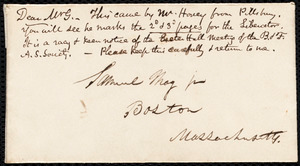 Dear Mr G. — This came by Mr. Hovey from Pillsbury.
You will see he marks the 2d & 3d pages for the Liberator.
It is a racy & keen notice of the Hall Meeting of the B. & F.
A. S. Society. — Please keep this carefully & return to me.
Samuel May Jr
Boston
Massachusetts.